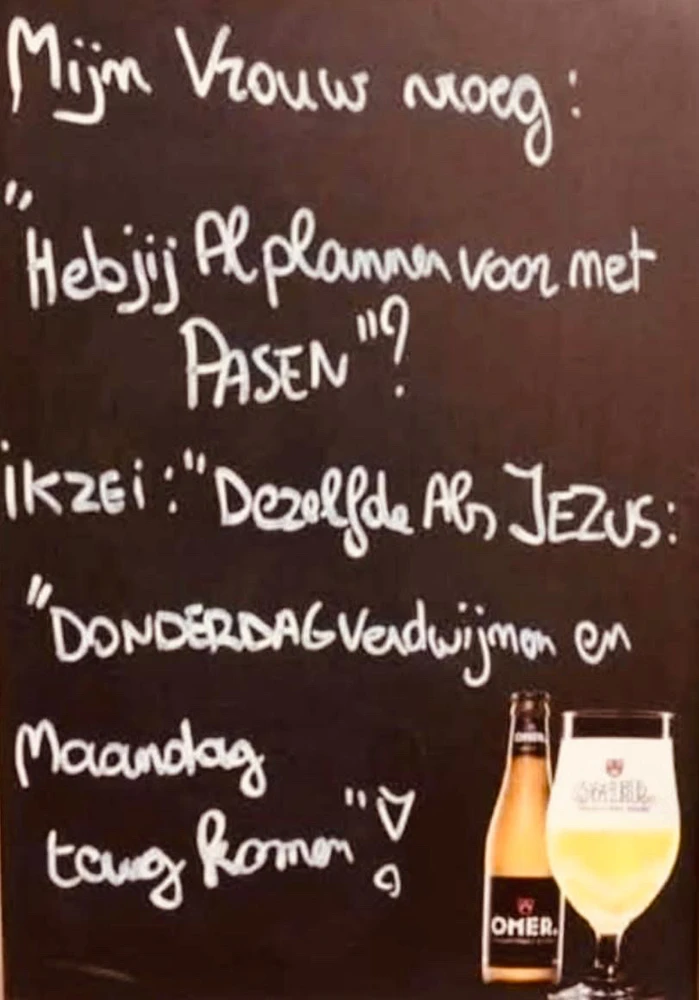 Mijn Vrouw vroeg:
"Heb jij Al plannen voor met
PASEN"?
ik ZEi: "Dezelfde Als JEZUS:
"DONDERDAG Verdwijnen en
Maandag
terug komen"!
OMER.
OMER.